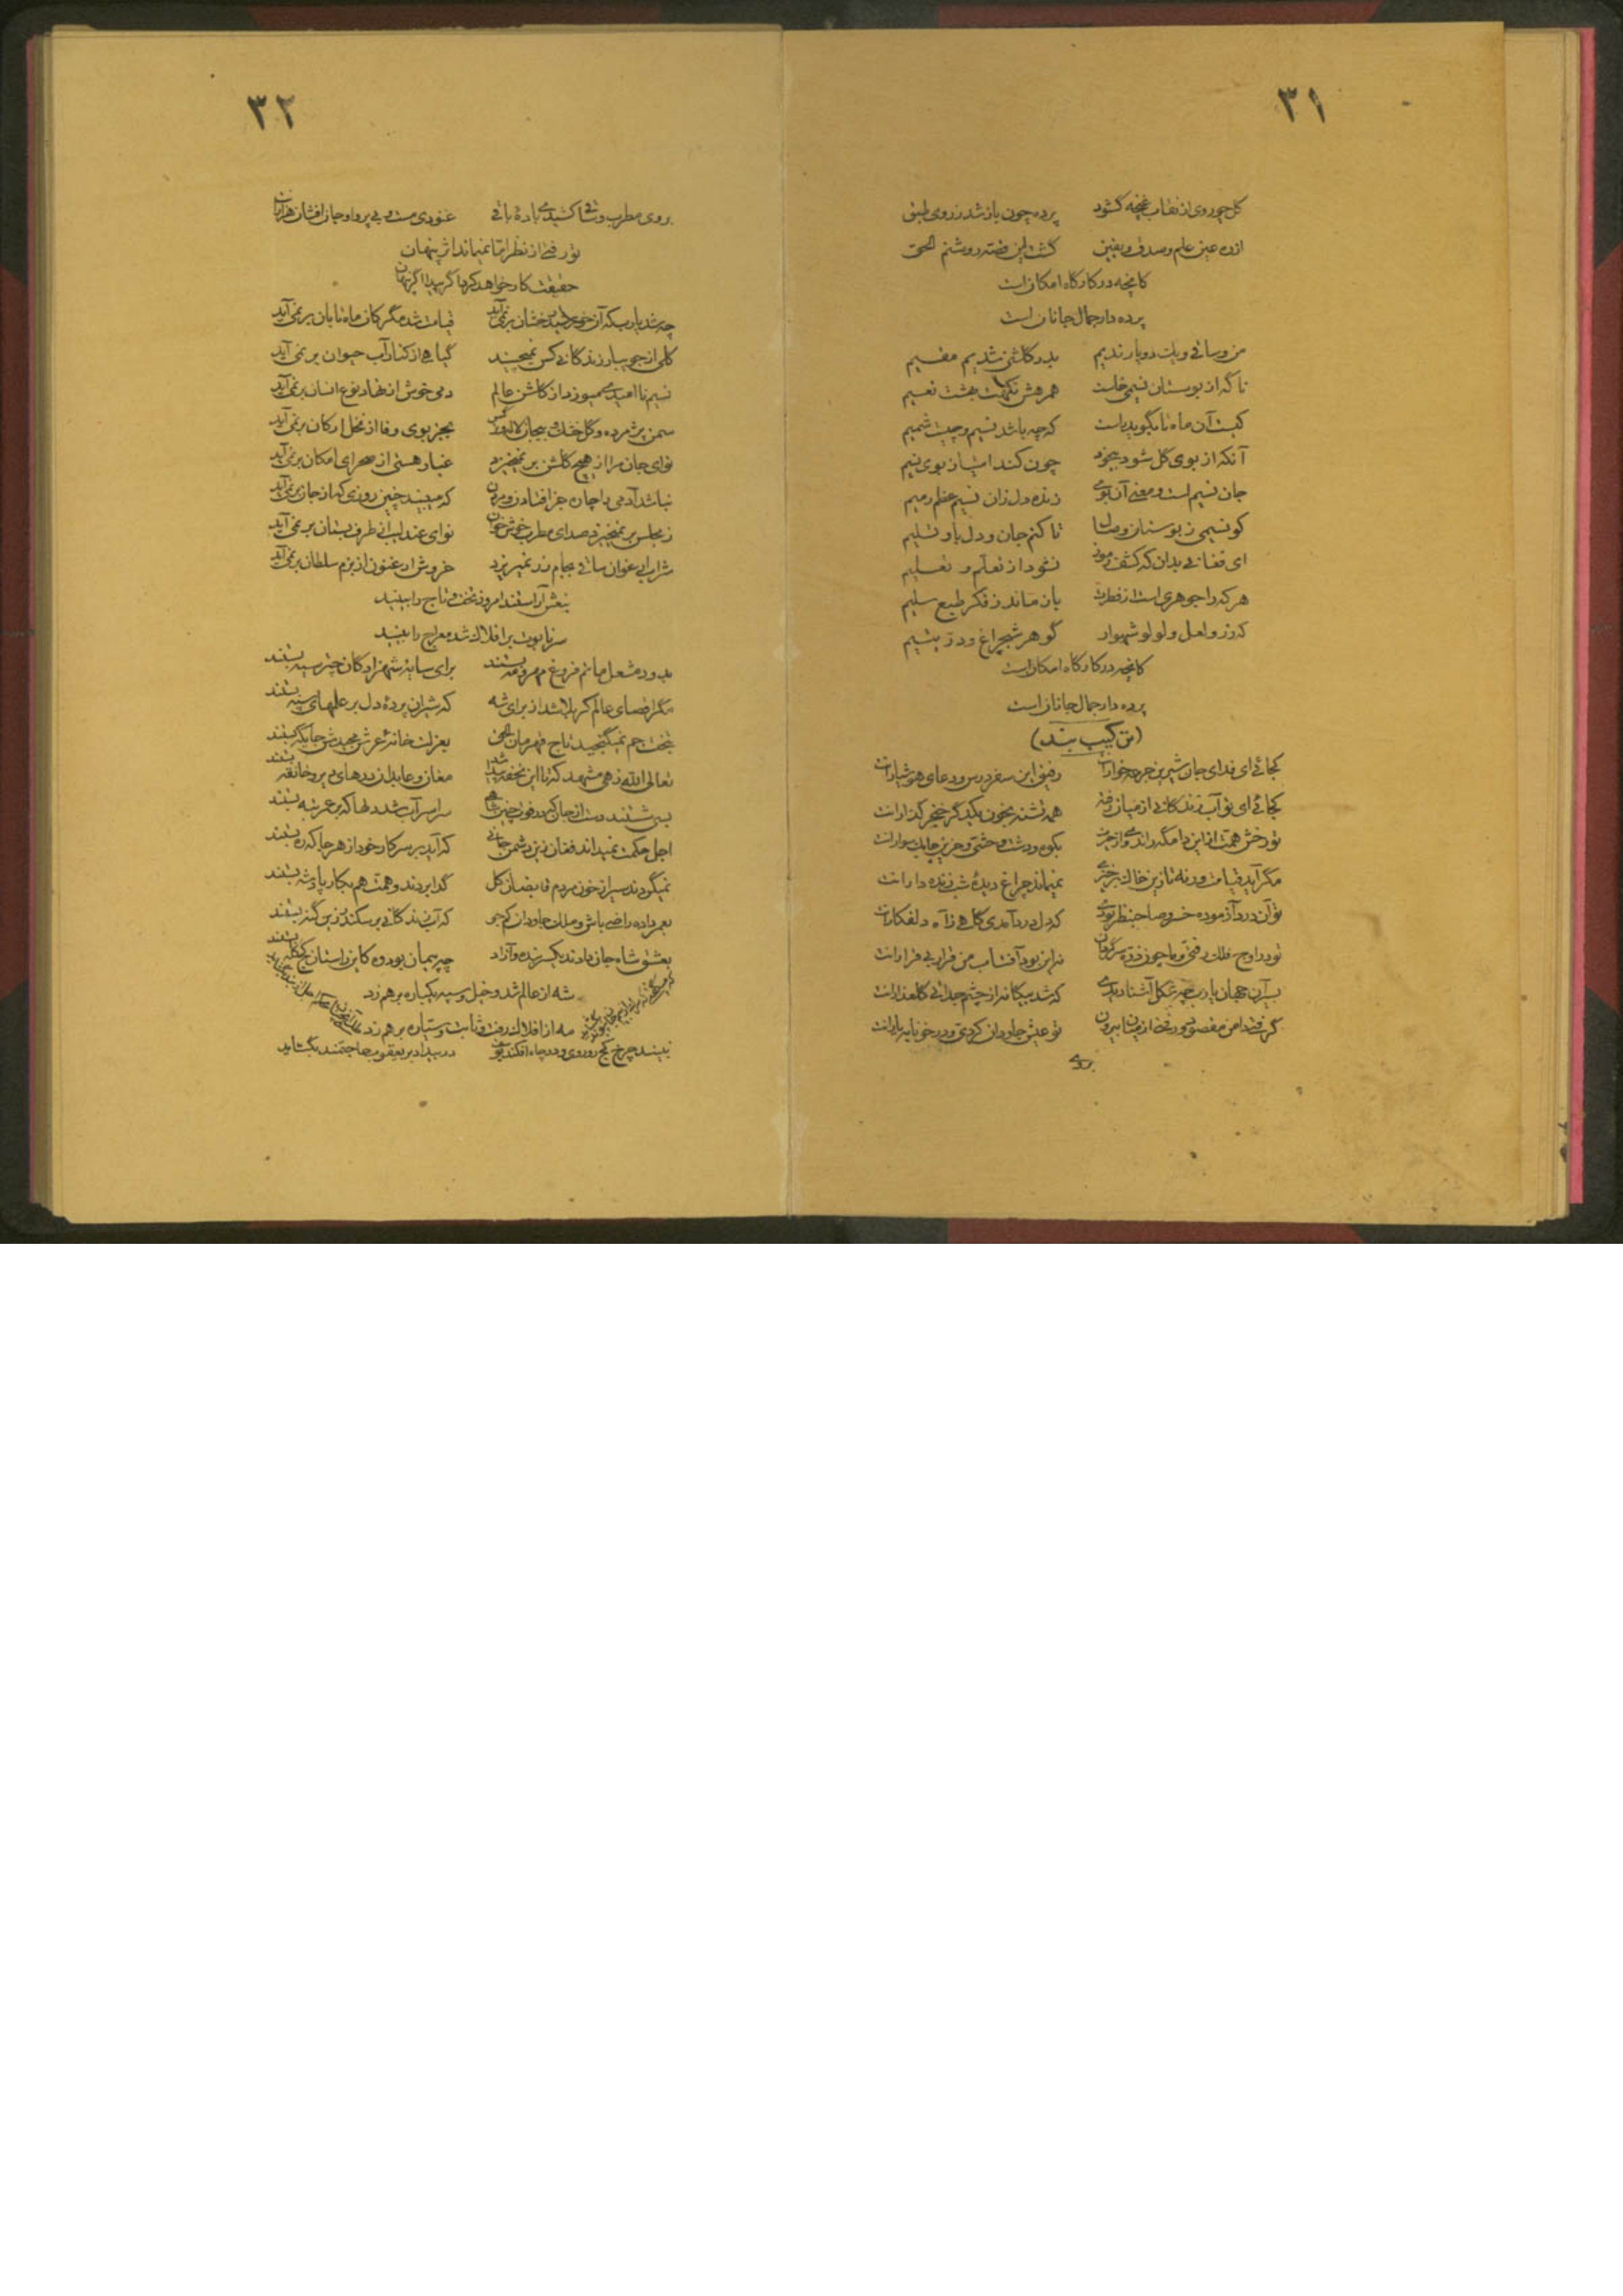 ۳۱
گل چو روی از نقاب غنچه گشود پرده چون باز شد ز روی طبق
از ره عین علم و صدق و یقین گشت این قصه روشنم الحق
کانچه در کارگاه امکان است
پرده دار جمال جانان است
من و ساقی و یک دو یار ندیم بدر گلشنی شدیم مقیم
ناگه از بوستان نسیمی خاست همره‌ش نکهت بهشت نعیم
کیست آن ماه تا بگوید راست که چه باشد نسیم و چیست شمیم
آنکه از بوی گل شود بیخود چون کند امتیاز بوی نسیم
جان نسیم است و معنی آن بوی زنده دل زان نسیم عظم رمیم
کو نسیمی ز بوستان وصال تا کنم جان و دل باو تسلیم
ای فغانی بدان که کشف رموز نشود از تعلم و تعلیم
هر که را جوهری است از فطرت باز ماند ز فکر طبع سلیم
که زر و لعل و لولو شهوار گوهر شبچراغ و در یتیم
کانچه در کارگاه امکان است
پرده دار جمال جانان است
(ترکیب بند)
کجائی ای فدای جان شیرین جرعه خوارانت رفیق این سفر درس و دعای هوشیارانت
کجائی ای تو آب زندگانی از میان رفته همه تشنه بخون یکدیگر خنجر گذارانت
تو رخش همت از این دامگه راندی و از حیرت بکوه و دشت وحشی و حزین چابک سوارانت
مگر آید قیامت ورنه تا زین خاک برخیزی نمیماند چراغ دیده شب زنده دارانت
تو آن درد آزموده خسرو صاحبنظر بودی که دل در درآمدی گاهی ز آه دلفکارانت
تو در اوج فلک رفتی و ما چون ذره سرگردان نه این بود آفتاب من قرار بی قرارانت
بسیر آن جهان یارب چه شکل آشنا دیدی که شد بیگانه از چشم جدائی گلعذارانت
گرفتی دامن مقصود و رفتی از میان بیرون تو عیش جاودان کردی و در خونابه یارانت
بروی
۳۲
بروی مطرب و ساقی کشیدی باده باقی غنودی مست و بی پروا و جان افشان هزارانت
تو رفتی از نظر اما نمیماند اثر پنهان
حقیقت کار خواهد کرد اگر پیدا اگر پنهان
چه شد یارب که آن خورشید رخشان بر نمی آید قیامت شد مگر کان ماه تابان بر نمی آید
گلی از جویبار زندگانی کس نمیچیند گیاهی از کنار آب حیوان بر نمی آید
نسیم ناامیدی میوزد از گلشن عالم دمی خوش از نهاد نوع انسان بر نمی آید
سمن پژمرده و گل خشک و بیجان لاله و نرگس بجز بوی وفا از نخل ارکان بر نمی آید
نوای جان مرا از هیچ گلشن بر نمیخیزد غبار هستی از صحرای امکان بر نمی آید
نباشد آدمی را چاره جز افتادن و مردن که میبیند چنین روزی که از جان بر نمی آید
ز مجلس بر نمیخیزد صدای مطرب خوش خوان نوای عندلیب از طرف بستان بر نمی آید
شراب ارغوان ساقی بجام زر نمیریزد خروش ارغنون از بزم سلطان بر نمی آید
بنعش آراستند امروز تخت و تاج را ببینید
سر تابوت بر افلاک شد معراج را ببینید
بدود مشعل ماتم فروغ مهر و مه بستند برای سایه شهزادگان چتر سیه بستند
مگر فضای عالم کربلا شد از برای شه که شیران پرده دل بر علمهای سیه بستند
بتخت جم نمیگنجید تاج قهرمان الحق بعزلت خانه عرش مجیدش جایگه بستند
تعالی الله زهی مشهد که تا این تحفه شد پیدا مغان و عابدان درهای دیر و خانقه بستند
بسی شستند دست از جان که در فوت چنین شاهی سراسر آب شد دلها که بر عرش بستند
اجل حکمت نمیداند فغان زین دشمن جانی که آید بر سر کار خود از هر جا که ره بستند
نمیگردند سیر از خون مردم قابضان کل گدا بردند و همت هم بکار پادشه بستند
بعمر داده راضی باش و ملک جاودان کم جو که آب زندگانی بر سکندر زین گنه بستند
بعشق شاه جان دادند یکسر بنده و آزاد چه پیمان بود و کاین راستان کج کله بستند
شه از عالم شد و خیل و سپه یکباره بر هم زد
مه از افلاک رفت و ثابت و سیاره بر هم زد
نبیند چرخ کج رو روی و در چاه افکند یوسف در بیداد بر یعقوب حاجتمند بگشاید